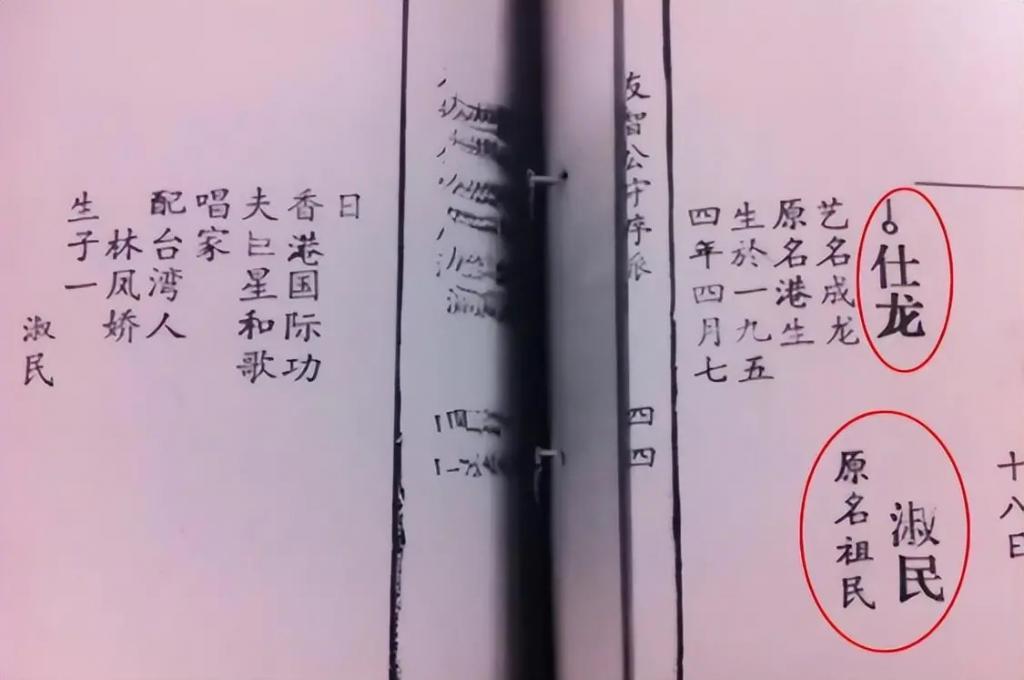 仕龙
艺名成龙
原名港生
生於一九五
四年四月七
十八日
淑民
原名祖民
友智公字序派
四四
日
香港国际功
夫巨星和歌
唱家
配台湾人
林凤娇
生子一
淑民